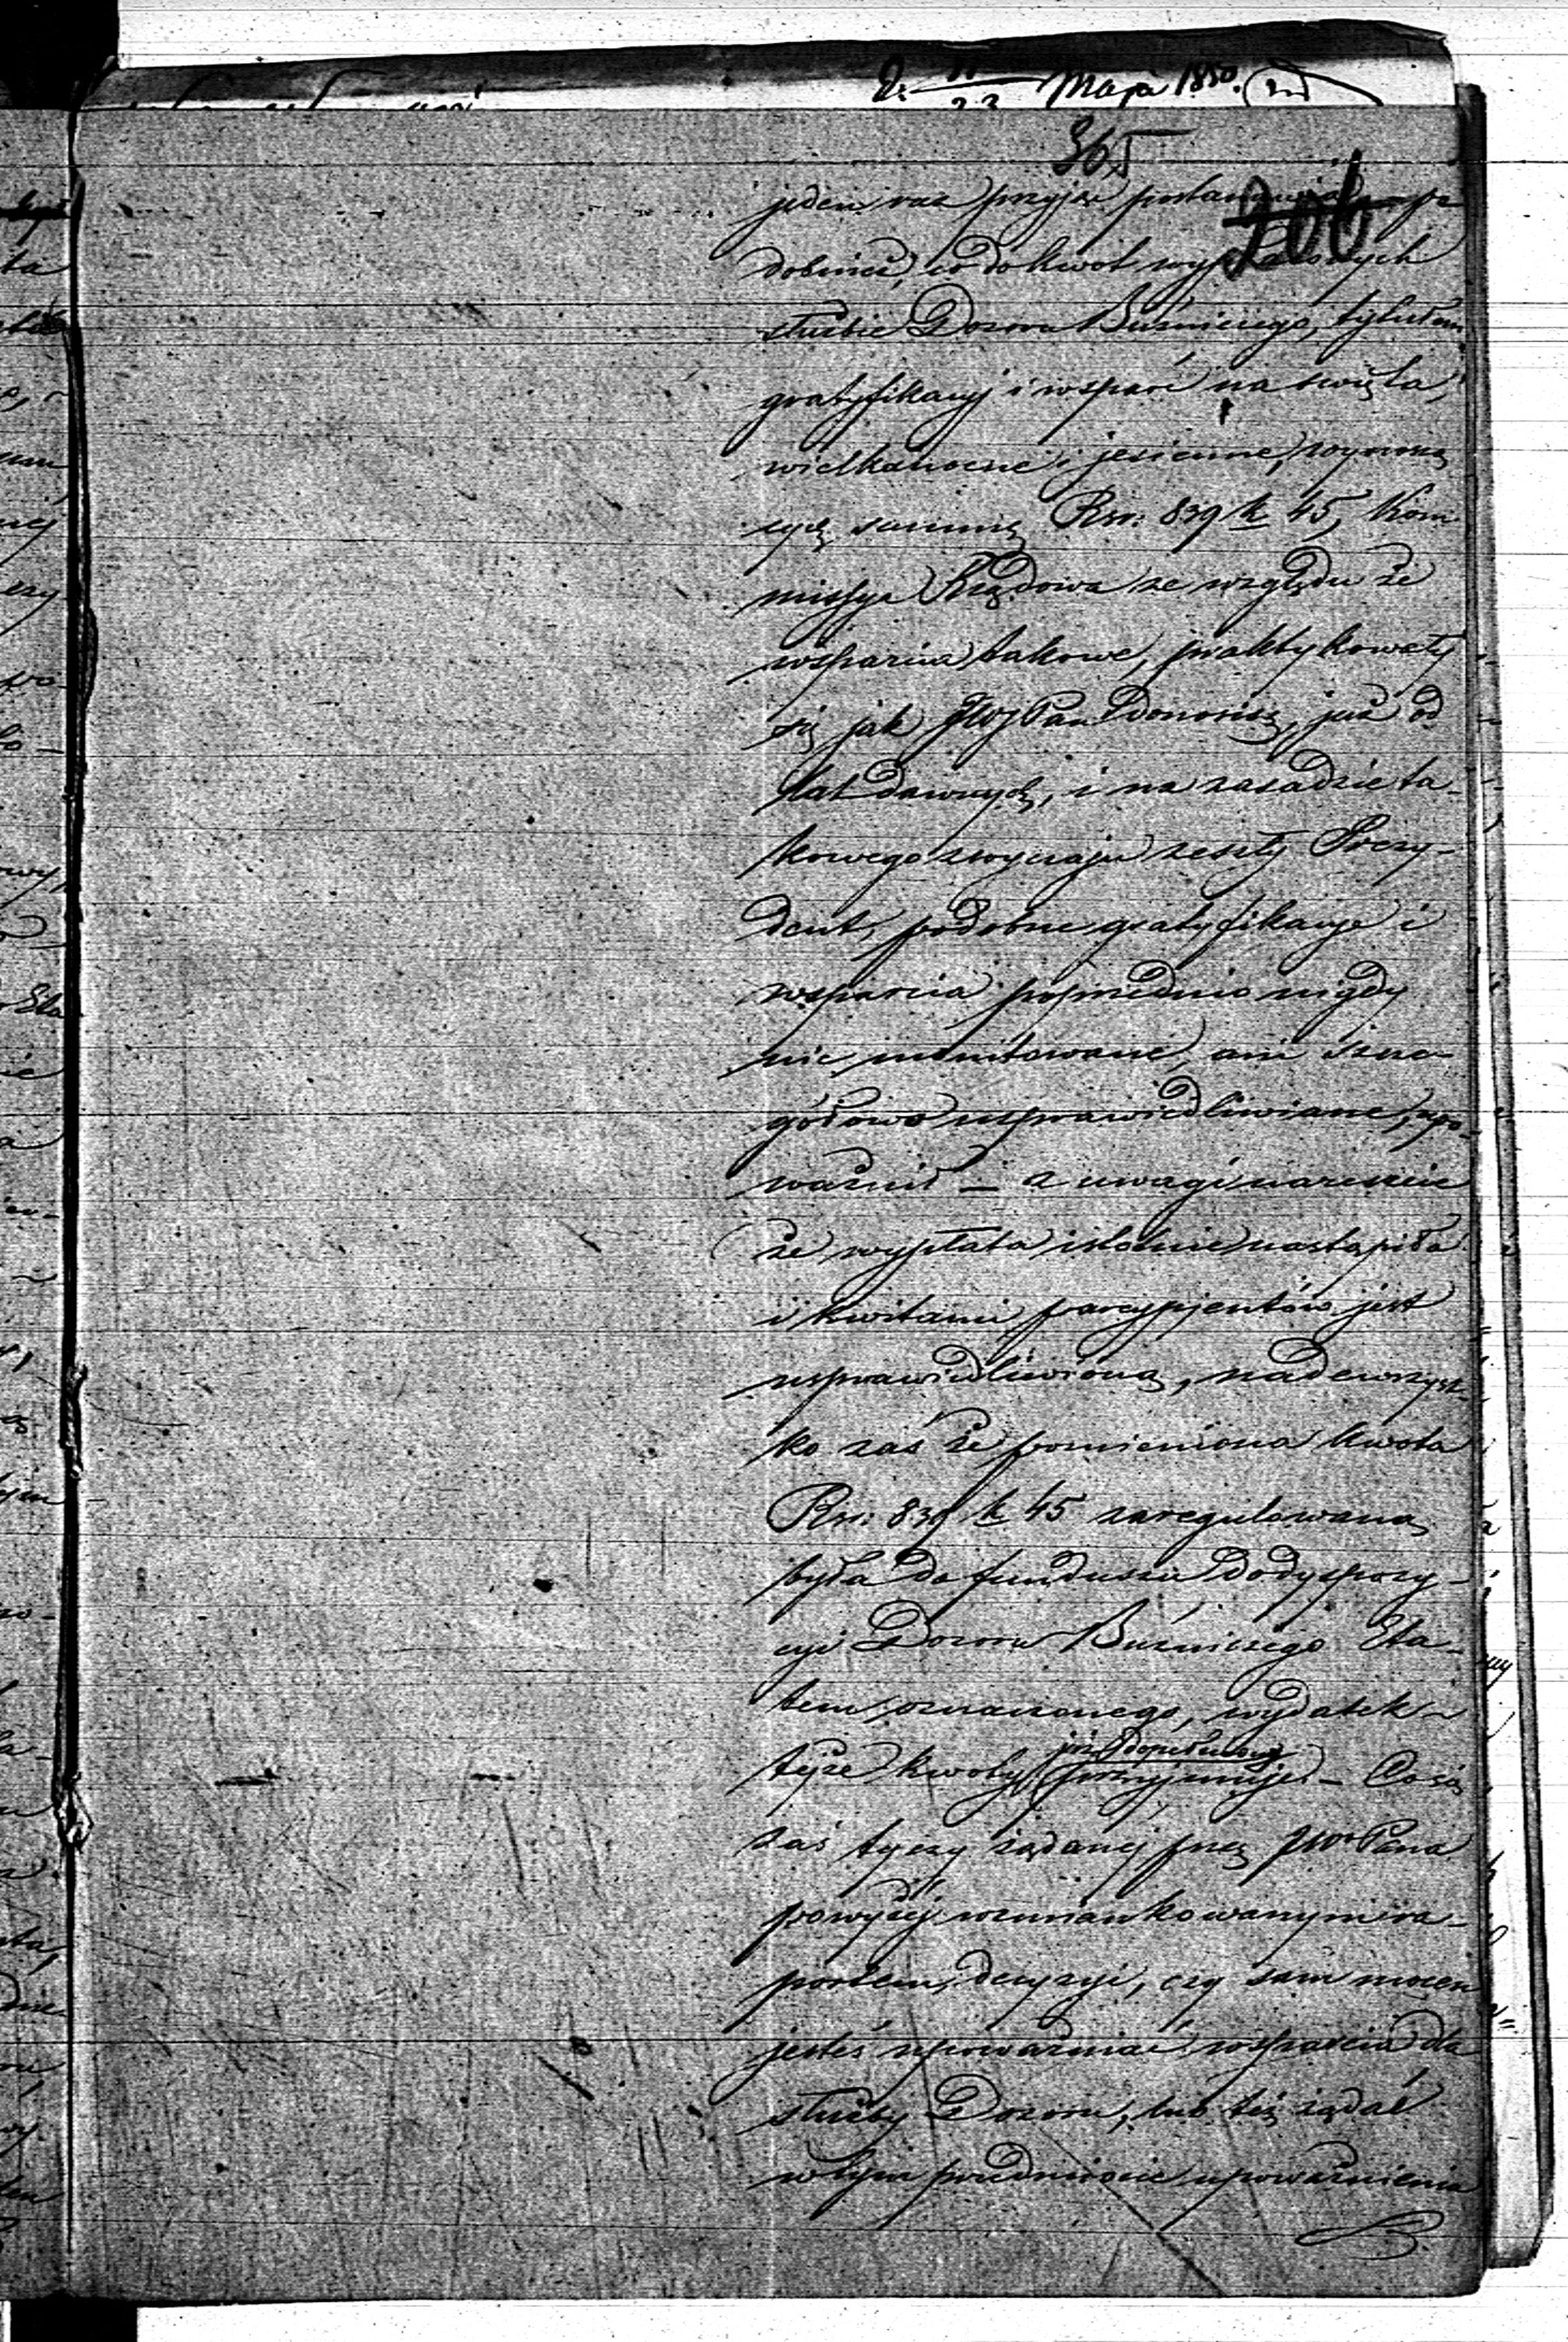 Maja 1850.
365
206
jeden raz przyjąć postanowiła po-
dobnież, co do kwot wypłaconych
służbie Dozoru Bużniczego, tytułem
gratyfikacyj i wsparć na święta,
wielkanocne i jesienne, wynoszą
cych summę Rsr: 839 k 45, Kom
missya Rządowa ze względu że
wsparcia takowe, praktykowały
się jak JWJPan donosisz, już od
lat dawnych, i na zasadzie ta-
kowego zwyczaju zeszły Prezy-
dent, podobne gratyfikacye i
wsparcia poprzednio nigdy
nie monitowane, ani szcze-
gółowo usprawiedliwiane, upo-
ważnił — z uwagi nareszcie
że wypłata istotnie nastąpiła
i kwitami percypjentów jest
usprawiedliwioną, nadewszyst-
ko zaś że pomieniona kwota
Rsr: 839 k 45 zaregulowaną
była do funduszu do dyspozy-
cyi Dozoru Bużniczego Eta-
tem oznaczonego, wydatek
tejże kwoty przyjmuje. — Co się
zaś tyczy żądanej przez JWoPana
powyżej wzmiankowanym ra-
portem, decyzyi, czy sam mocen
jesteś upoważniać wsparcia dla
służby Dozoru, lub też żądać
w tym przedmiocie upoważnienia